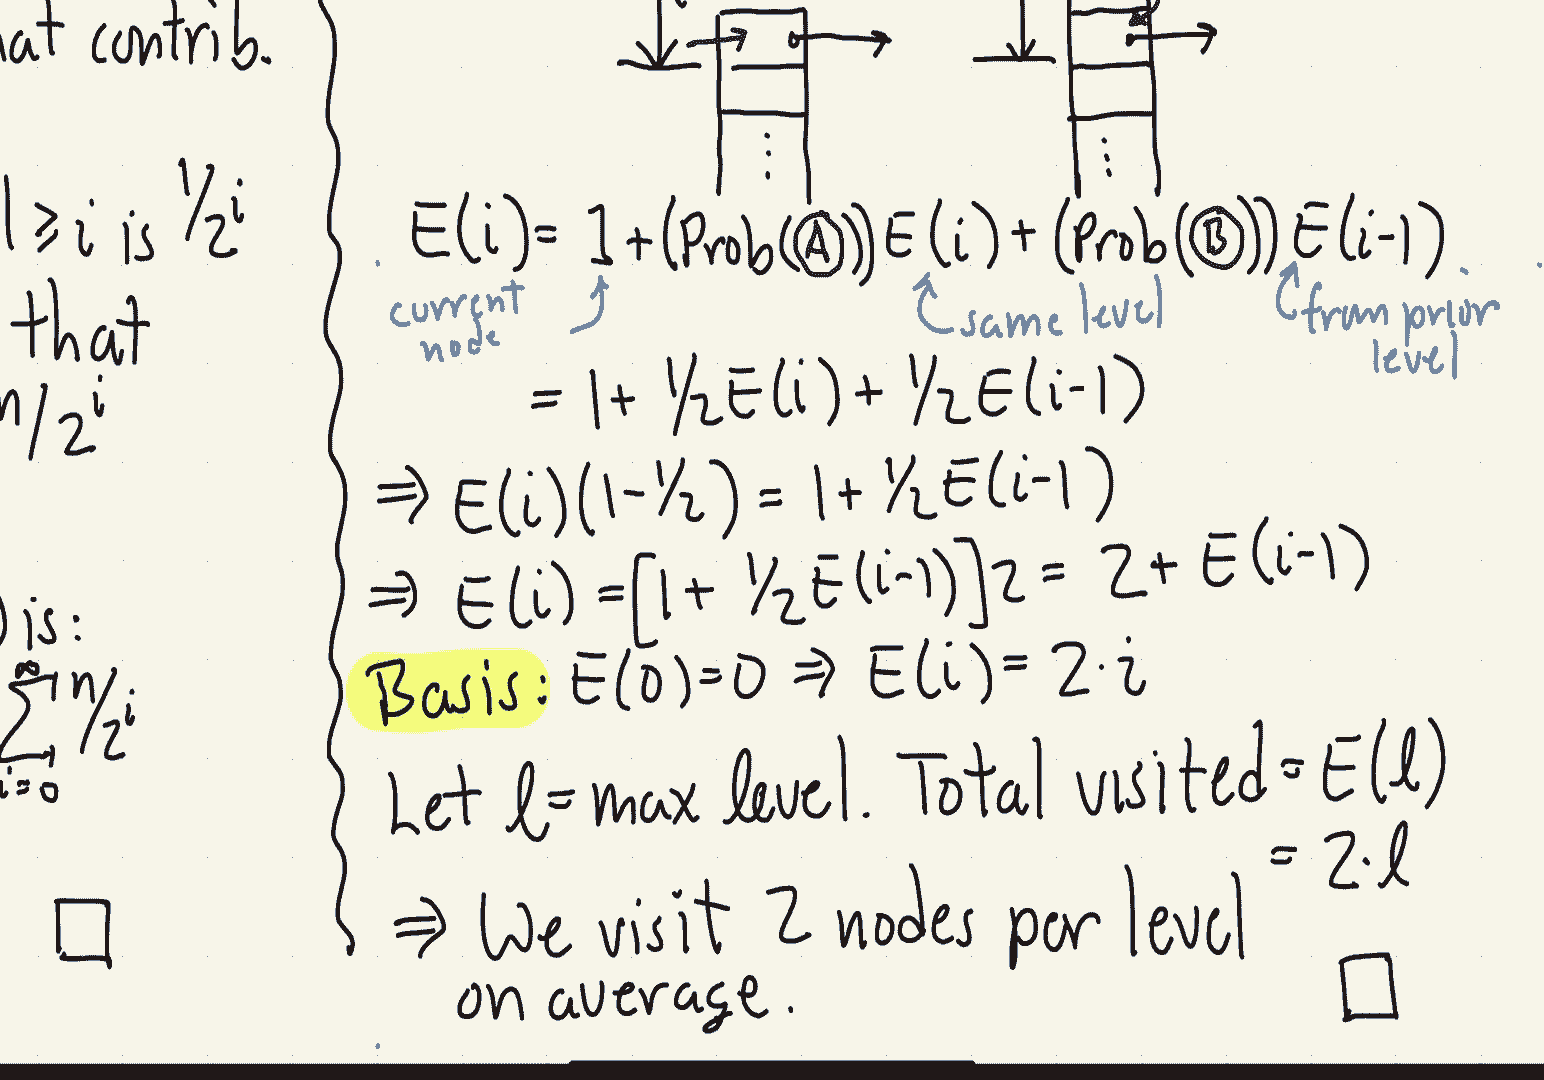 contrib.
≥ i is 1/2^i
that
n/2^i
is:
∞
∑ n/2^i
i=0
E(i) = 1 + (Prob(A)) E(i) + (Prob(B)) E(i-1)
current node
same level
from prior level
= 1 + 1/2 E(i) + 1/2 E(i-1)
⇒ E(i)(1-1/2) = 1 + 1/2 E(i-1)
⇒ E(i) = [1 + 1/2 E(i-1)] 2 = 2 + E(i-1)
Basis: E(0) = 0 ⇒ E(i) = 2·i
Let ℓ = max level. Total visited = E(ℓ)
= 2·ℓ
⇒ We visit 2 nodes per level
on average.